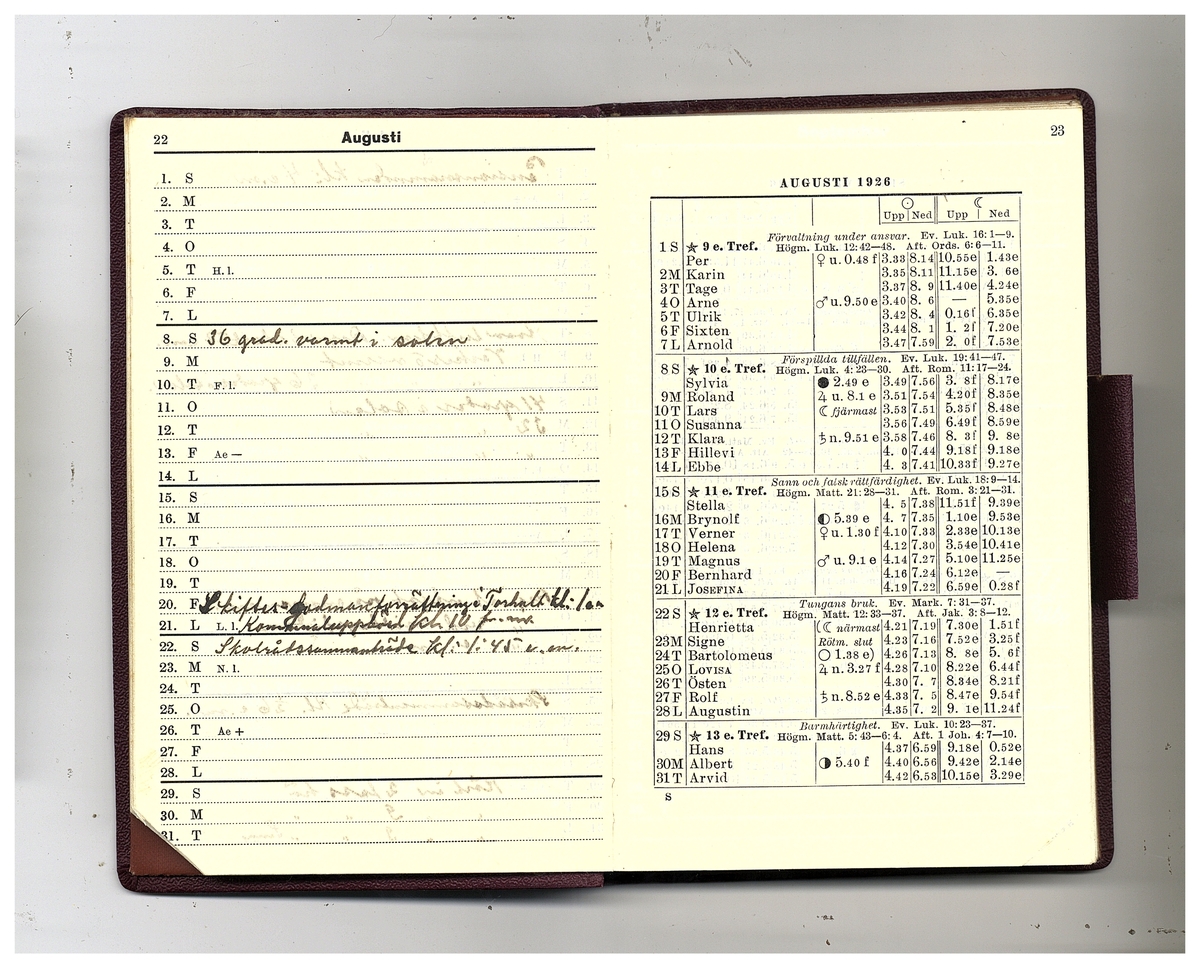 22 Augusti
1. S
2. M
3. T
4. O
5. T H. l.
6. F
7. L
8. S 36 grad. varmt i solen
9. M
10. T F. l.
11. O
12. T
13. F Ae —
14. L
15. S
16. M
17. T
18. O
19. T
20. F Skiftes Godmansförrättning i Torhalt kl: 1
21. L L. l. kl: 10 f. m.
22. S Skolrådssammanträde kl: 1:45 e. m.
23. M N. l.
24. T
25. O
26. T Ae +
27. F
28. L
29. S
30. M
31. T
23
AUGUSTI 1926
☉ ☾
Upp Ned Upp Ned
Förvaltning under ansvar. Ev. Luk. 16: 1—9.
1 S ★ 9 e. Tref. Högm. Luk. 12: 42—48. Aft. Ords. 6: 6—11.
Per ♀ u. 0.48 f 3.33 8.14 10.55e 1.43e
2 M Karin 3.35 8.11 11.15e 3. 6e
3 T Tage 3.37 8. 9 11.40e 4.24e
4 O Arne ♂ u. 9.50 e 3.40 8. 6 — 5.35e
5 T Ulrik 3.42 8. 4 0.16f 6.35e
6 F Sixten 3.44 8. 1 1. 2f 7.20e
7 L Arnold 3.47 7.59 2. 0f 7.53e
Förspillda tillfällen. Ev. Luk. 19: 41—47.
8 S ★ 10 e. Tref. Högm. Luk. 4: 23—30. Aft. Rom. 11: 17—24.
Sylvia ● 2.49 e 3.49 7.56 3. 8f 8.17e
9 M Roland ♃ u. 8.1 e 3.51 7.54 4.20f 8.35e
10 T Lars ☾ fjärmast 3.53 7.51 5.35f 8.48e
11 O Susanna 3.56 7.49 6.49f 8.59e
12 T Klara ♄ n. 9.51 e 3.58 7.46 8. 3f 9. 8e
13 F Hillevi 4. 0 7.44 9.18f 9.18e
14 L Ebbe 4. 3 7.41 10.33f 9.27e
Sann och falsk rättfärdighet. Ev. Luk. 18: 9—14.
15 S ★ 11 e. Tref. Högm. Matt. 21: 28—31. Aft. Rom. 3: 21—31.
Stella 4. 5 7.38 11.51f 9.39e
16 M Brynolf ◐ 5.39 e 4. 7 7.35 1.10e 9.53e
17 T Verner ♀ u. 1.30 f 4.10 7.33 2.33e 10.13e
18 O Helena 4.12 7.30 3.54e 10.41e
19 T Magnus ♂ u. 9.1 e 4.14 7.27 5.10e 11.25e
20 F Bernhard 4.16 7.24 6.12e —
21 L JOSEFINA 4.19 7.22 6.59e 0.28f
Tungans bruk. Ev. Mark. 7: 31—37.
22 S ★ 12 e. Tref. Högm. Matt. 12: 33—37. Aft. Jak. 3: 8—12.
Henrietta ☾ närmast 4.21 7.19 7.30e 1.51f
23 M Signe Rötm. slut 4.23 7.16 7.52e 3.25f
24 T Bartolomeus ○ 1.38 e) 4.26 7.13 8. 8e 5. 6f
25 O LOVISA ♃ n. 3.27 f 4.28 7.10 8.22e 6.44f
26 T Östen 4.30 7. 7 8.34e 8.21f
27 F Rolf ♄ n. 8.52 e 4.33 7. 5 8.47e 9.54f
28 L Augustin 4.35 7. 2 9. 1e 11.24f
Barmhärtighet. Ev. Luk. 10: 23—37.
29 S ★ 13 e. Tref. Högm. Matt. 5: 43—6: 4. Aft. 1 Joh. 4: 7—10.
Hans 4.37 6.59 9.18e 0.52e
30 M Albert ◑ 5.40 f 4.40 6.56 9.42e 2.14e
31 T Arvid 4.42 6.53 10.15e 3.29e
S